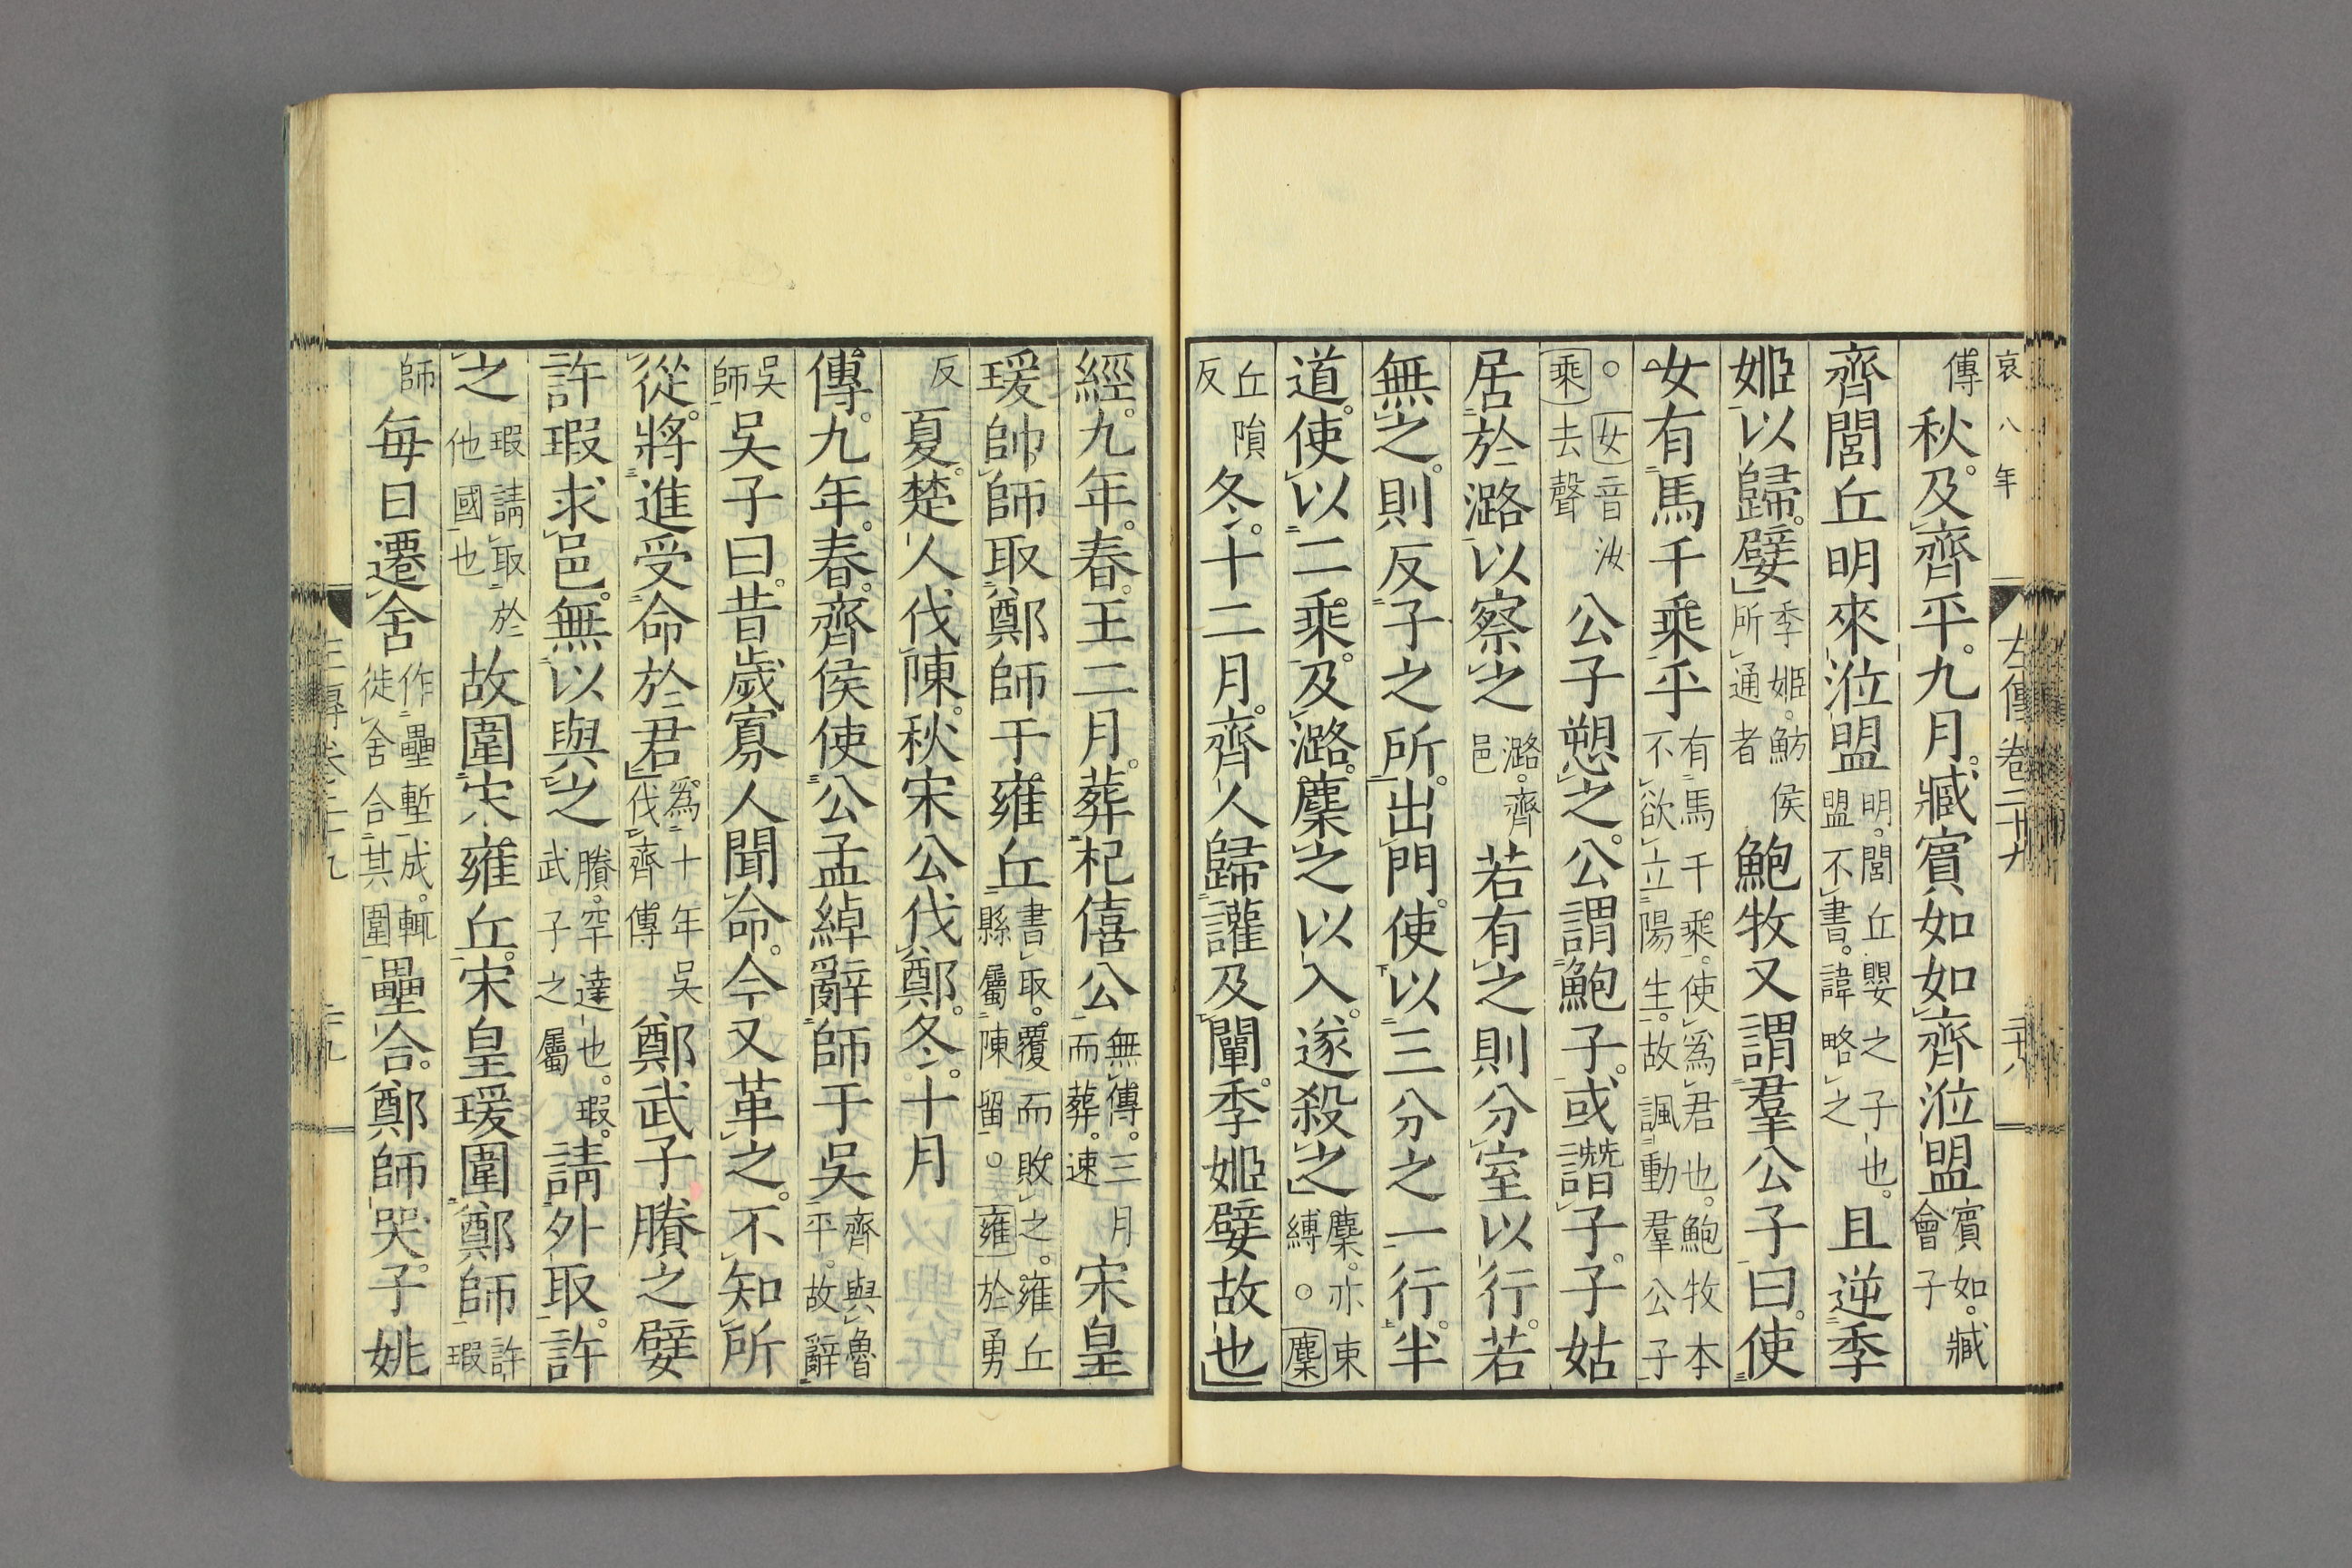 哀八年
左傳卷二十九
二十八
傳秋。及齊平。九月。臧賓如如齊涖盟賓如。臧會子
齊閭丘明來涖盟明。閭丘嬰之子也。盟不書。諱略之且逆季
姬以歸。嬖季姬。魴侯所通者鮑牧又謂羣公子曰。使
女有馬千乘乎有馬千乘。使爲君也。鮑牧本不欲立陽生。故諷動羣公子
○女音汝乘去聲公子愬之。公謂鮑子。或譖子。子姑
居於潞以察之潞。齊邑若有之則分室以行。若
無之。則反子之所。出門。使以三分之一行。半
道。使以二乘。及潞。麇之以入。遂殺之麇。亦束縛○麇
丘隕反冬。十二月。齊人歸讙及闡。季姬嬖故也
經。九年。春。王二月。葬杞僖公無傳。三月而葬。速宋皇
瑗帥師取鄭師于雍丘書取。覆而敗之。雍丘縣屬陳留○雍於勇
反夏。楚人伐陳。秋宋公伐鄭。冬。十月
傳。九年。春。齊侯使公孟綽辭師于吳齊與魯平。故辭
吳師吳子曰。昔歲寡人聞命。今又革之。不知所
從。將進受命於君爲十年吳伐齊傳鄭武子賸之嬖
許瑕求邑。無以與之賸。罕達也。瑕。武子之屬請外取。許
之瑕請取於他國也故圍宋雍丘。宋皇瑗圍鄭師許瑕
師每日遷舍作壘塹成。輒徙舍合其圍壘合。鄭師哭。子姚